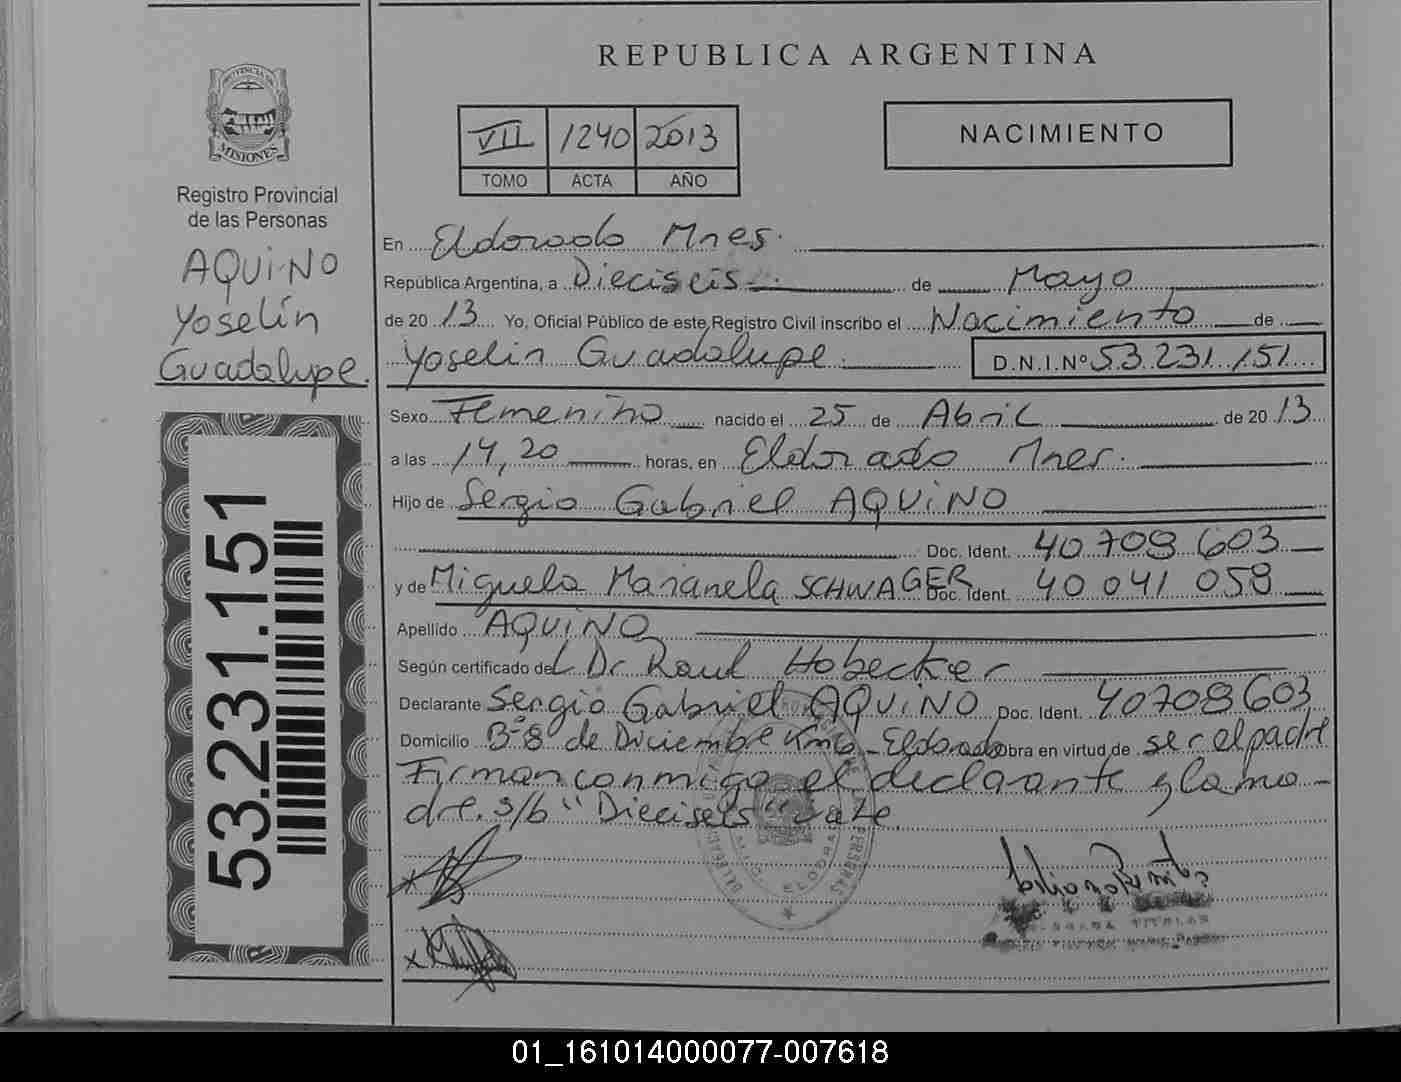 REPUBLICA ARGENTINA
PROVINCIA DE
MISIONES
Registro Provincial
de las Personas
AQUINO
Yoselín
Guadalupe.
53.231.151
VII 1240 2013
TOMO ACTA AÑO
NACIMIENTO
En Eldorado Mnes.
República Argentina, a Dieciseis de Mayo
de 20 13 Yo, Oficial Público de este Registro Civil inscribo el Nacimiento de
Yoselin Guadalupe. D.N.I.Nº 53.231.151
Sexo Femenino nacido el 25 de Abril de 20 13
a las 14,20 horas, en Eldorado Mnes.
Hijo de Sergio Gabriel AQUINO
Doc. Ident. 40 708 603
y de Miguela Marianela SCHWAGER Doc. Ident. 40 041 058
Apellido AQUINO
Según certificado del Dr Raul Hobecker
Declarante Sergio Gabriel AQUINO Doc. Ident. 40708603
Domicilio B-8 de Diciembre Km6 - Eldorado obra en virtud de ser el padre
Firman conmigo el declarante y la ma-
dre. s/b "Dieciseis" vale.
x
x
PERSONAS
TITULAR
01_161014000077-007618